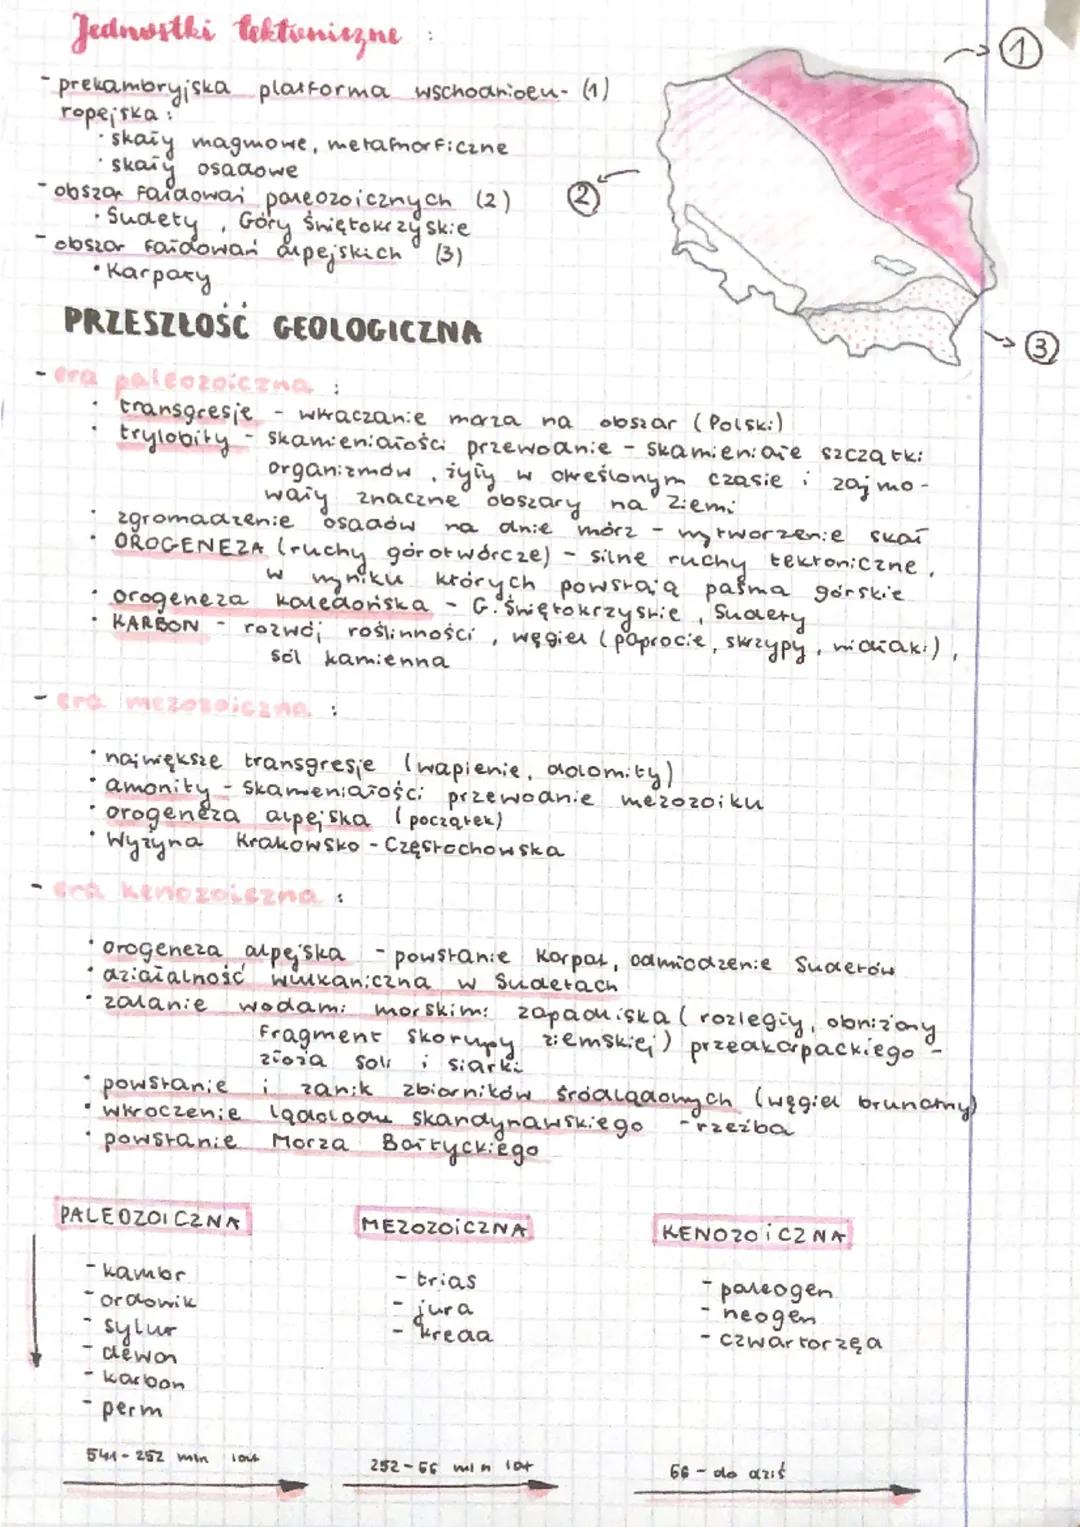 Jednostki tektoniczne :
- prekambryjska platforma wschodnioeu- (1)
ropejska :
· skały magmowe, metamorficzne
· skały osadowe
- obszar fałdowań paleozoicznych (2)
· Sudety, Góry Świętokrzyskie
- obszar fałdowań alpejskich (3)
· Karpaty
1
2
3
PRZESZŁOŚĆ GEOLOGICZNA
- era paleozoiczna :
· transgresje - wkraczanie morza na obszar (Polski)
· trylobity - skamieniałości przewodnie - skamieniałe szczątki
organizmów, żyły w określonym czasie i zajmo-
wały znaczne obszary na Ziemi
· zgromadzenie osadów na dnie mórz - wytworzenie skał
· OROGENEZA (ruchy górotwórcze) - silne ruchy tektoniczne,
w wyniku których powstają pasma górskie
· orogeneza kaledońska - G. Świętokrzyskie, Sudety
· KARBON - rozwój roślinności, węgiel (paprocie, skrzypy, widłaki),
sól kamienna
- era mezozoiczna :
· największe transgresje (wapienie, dolomity)
· amonity - skamieniałości przewodnie mezozoiku
· orogeneza alpejska (początek)
· Wyżyna Krakowsko - Częstochowska
- era kenozoiczna :
· orogeneza alpejska - powstanie Karpat, odmłodzenie Sudetów
· działalność wulkaniczna w Sudetach
· zalanie wodami morskimi zapadliska (rozległy, obniżony
fragment skorupy ziemskiej) przedkarpackiego -
złoża soli i siarki
· powstanie i zanik zbiorników śródlądowych (węgiel brunatny)
· wkroczenie lądolodu skandynawskiego - rzeźba
· powstanie Morza Bałtyckiego
PALEOZOICZNA
- kambr
- ordowik
- sylur
- dewon
- karbon
- perm
541 - 252 mln lat
MEZOZOICZNA
- trias
- jura
- kreda
252 - 66 mln lat
KENOZOICZNA
- paleogen
- neogen
- czwartorzęd
66 - do dziś